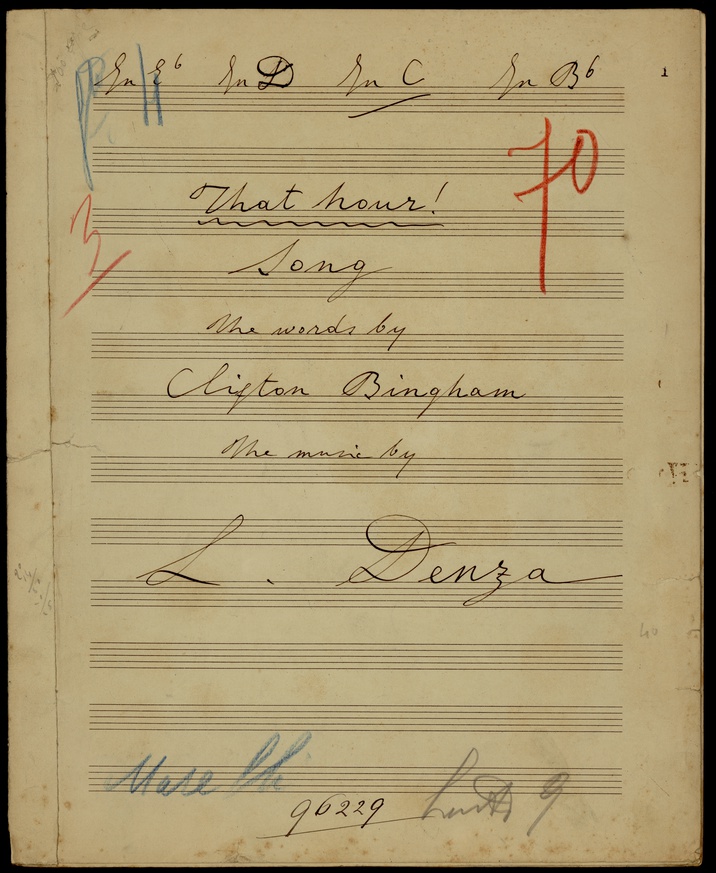 In E♭ In D In C In B♭ 1
70
That hour!
3
Song
The words by
Clifton Bingham
The music by
L. Denza
40
96229 9